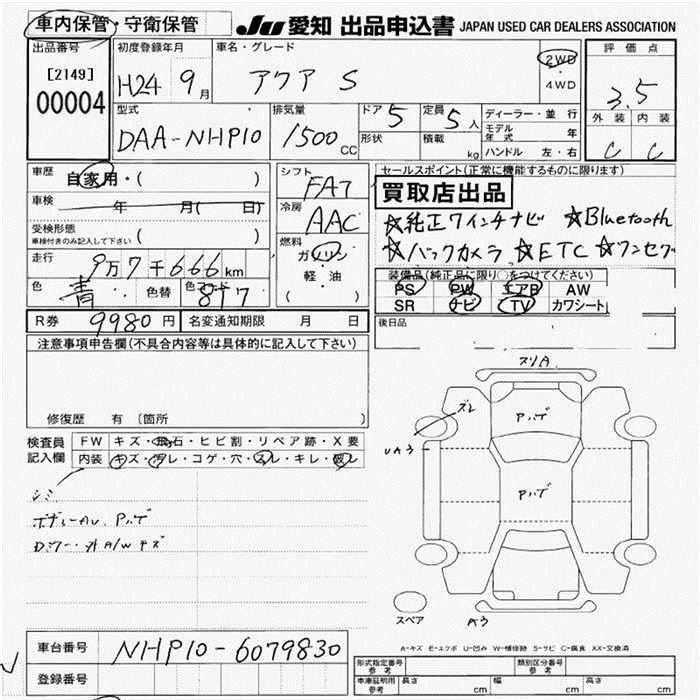 車内保管・守衛保管
JU 愛知 出品申込書 JAPAN USED CAR DEALERS ASSOCIATION
出品番号 初度登録年月 車名・グレード 2WD・4WD 評価点
[2149]
00004 H24 9月 アクア S 3.5
型式 排気量 ドア 5 定員 5人 ディーラー・並行 外装 内装
DAA-NHP10 1500 CC 形状 積載 kg モデル年式 年 C C
ハンドル 左・右
車歴 自家用・( ) シフト FAT セールスポイント(正常に機能するものに限ります)
車検 年 月( 日) 冷房 AAC 買取店出品
受検形態 ( ) ☆純正7インチナビ ☆Bluetooth
車検付きのみ記入して下さい 燃料 ガソリン・軽・油 ( ) ☆バックカメラ ☆ETC ☆ワンセグ
走行 9万7千666km
色 青 色替 色コード 8T7
装備品(純正品に限り○をつけてください)
PS PW エアB AW
SR ナビ TV カワシート
R券 9980円 名変通知期限 月 日 後日品
注意事項申告欄(不具合内容等は具体的に記入して下さい)
修復歴 有 (箇所
検査員記入欄 FW キズ・飛石・ヒビ割・リペア跡・X要
内装 キズ・汚レ・コゲ・穴・スレ・キレ・破レ
シミ
ボディーAU、Pハゲ
Dミラー・外A/Wキズ
スリA
ズレ
Pハゲ
UA3
Pハゲ
スペア
A3
A-キズ E-エクボ U-凹み W-補修跡 S-サビ C-腐食 XX-交換済
車台番号 NHP10-6079830
登録番号
形式指定番号 参考 類別区分番号 参考
車庫証明用 参考 長さ cm 幅 cm 高さ cm